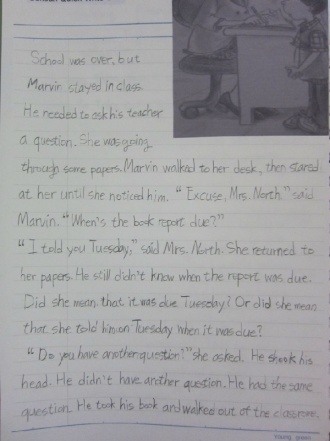 School was over, but
Marvin stayed in class.
He needed to ask his teacher
a question. She was going
through some papers. Marvin walked to her desk, then stared
at her until she noticed him. "Excuse, Mrs. North." said
Marvin. "When's the book report due?"
"I told you Tuesday," said Mrs. North. She returned to
her papers. He still didn't know when the report was due.
Did she mean that it was due Tuesday? Or did she mean
that she told him on Tuesday when it was due?
"Do you have another question?" she asked. He shook his
head. He didn't have another question. He had the same
question. He took his book and walked out of the classroom.
young green